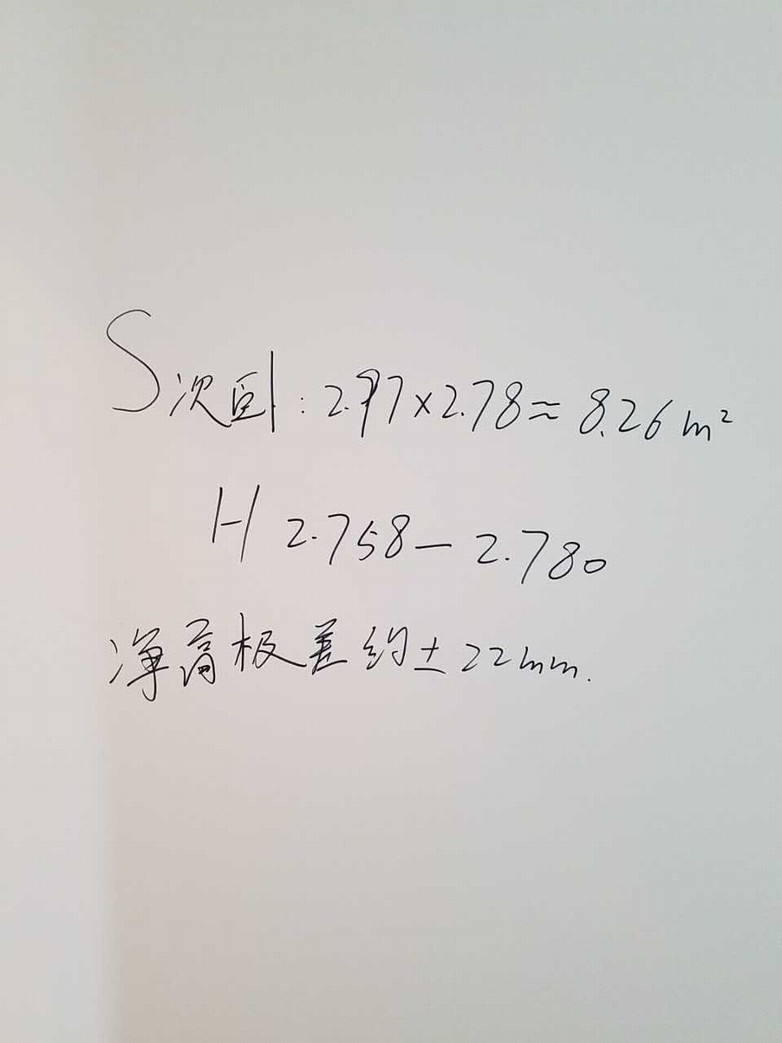 S次卧:2.97×2.78≈8.26m²
H 2.758—2.780
净高极差约±22mm.